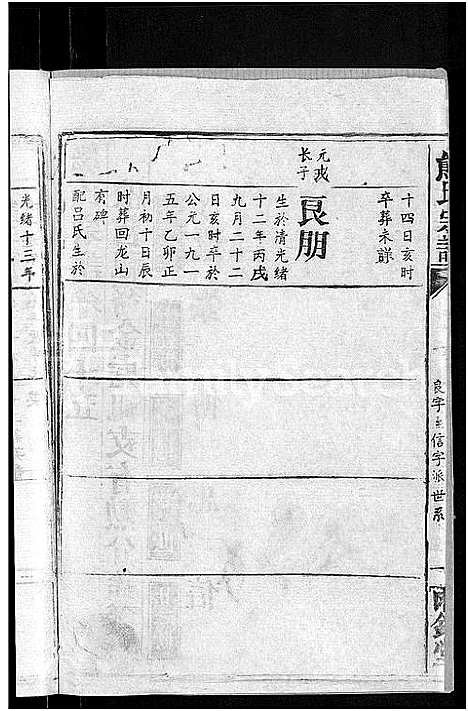 熊氏宗譜
良字至信字派世系
十四日亥时
卒葬未詳
元戎
长子
良朋
生於清光緒
十二年丙戌
九月二十二
日亥时卒於
公元一九一
五年乙卯正
月初十日辰
时葬回龙山
有碑
配吕氏生於
光緒十三年